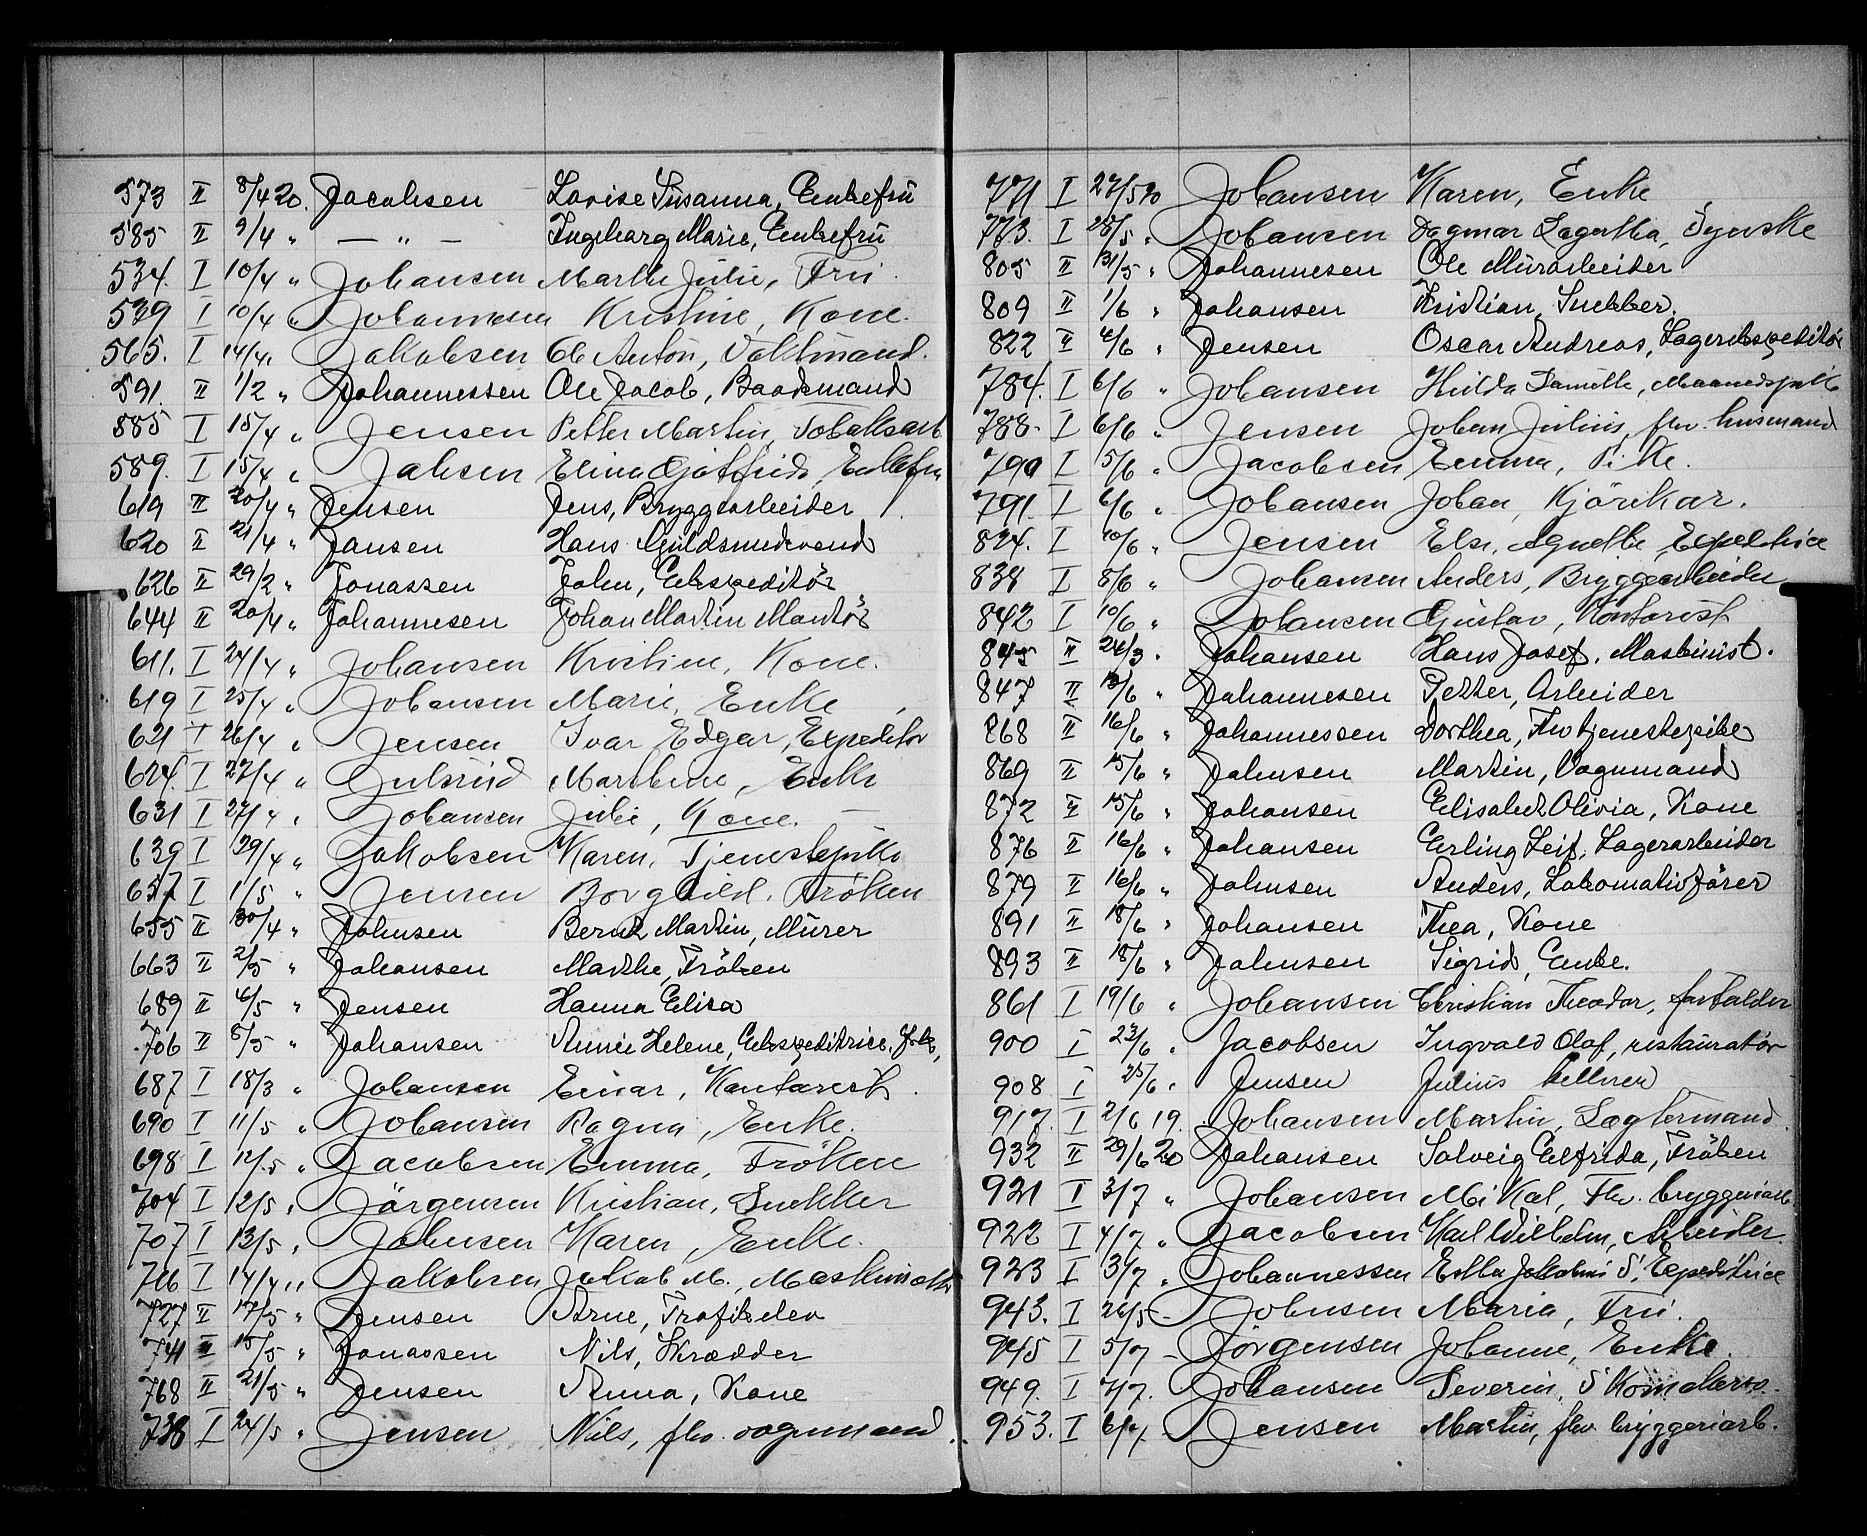 573 II 8/4 20. Jacobsen Lovise Susanna, Enkefru
585 II 9/4 " — " — Ingeborg Marie, Enkefru
534. I 10/4 " Johansen Marthe Julie, Fru
539 I 10/4 " Johannesen Kristine, Kone.
565. I 14/4 " Jakobsen Ole Anton, Vaktmand.
591. II 1/2 " Johannessen Ole Jacob, Baadsmand
885 I 15/4 " Jensen Petter Martin, Tobaksarb
589. I 15/4 " Jahsen Elina Gotfrida, Enkefru
619 II 20/4 " Jensen Jens, Bryggearbeider
620 II 21/4 " Jansen Hans Guldsmedsvend
626 II 29/2 " Jonassen John, Ekspeditör
644 II 20/4 " Johannesen Johan Martin Montör
611. I 24/4 " Johansen Kristine, Kone.
619 I 25/4 " Johansen Marie, Enke
621 I 26/4 " Jensen Ivar Edgar, Expeditör
624. I 27/4 " Julsrud Marthine, Enke
631 I 27/4 " Johansen Julie, Kone.
639 I 29/4 " Jakobsen Karen, Tjenestepike
657 I 1/5 " Jensen Borghild, Fröken
655 II 30/4 " Johnsen Bernt Martin, Murer
663 II 2/5 " Johansen Marthe, Fröken
689 II 6/5 " Jensen Hanna Elisa
706 II 8/5 " Johansen Annie Helene, Ekspeditrice,
687 I 18/3 " Johansen Einar, Kontorist
690 I 11/5 " Johansen Ragna, Enke.
698 I 12/5 " Jacobsen Emma, Fröken
704 I 12/5 " Jörgensen Kristian, Snekker
707 I 13/5 " Johnsen Karen, Enke.
716 I 14/4 " Jakobsen Jakob M., Maskinist
727 II 17/5 " Jensen Arne, Trafikelev
741 II 15/5 " Jonassen Nils, Skrædder
768 II 21/5 " Jensen Anna, Kone
738 I 24/5 " Jensen Nils, fhv. vognmand.
771 I 27/5 20 Johansen Karen, Enke
773. I 28/5 " Johansen Dagmar Lagertha, Syerske
805 II 31/5 " Johannesen Ole Murarbeider
809 II 1/6 " Johansen Kristian, Snekker.
822 II 4/6 " Jensen Oscar Andreas, Lagerekspeditör
784. I 6/6 " Johansen Hilda Kamille,
788. I 6/6 " Jensen Johan Julius, fhv. husmand
790 I 5/6 " Jacobsen Emma, Pike.
791. I 6/6 " Johansen Johan, Kjörekar.
834. I 10/6 " Jensen Else, Agnethe, Expeditrice
838 I 8/6 " Johansen Anders, Bryggearbeider
842 I 10/6 " Johansen Gustav, Kontorist
845 II 24/3 " Johansen Hans Josef, Maskinist.
847 II 13/6 " Johannesen Petter, Arbeider
868 II 16/6 " Johannessen Dorthea, Fhv tjenestepike
869 II 15/6 " Johnsen Martin, Vognmand
872 II 15/6 " Johansen Elisabet Olivia, Kone
876 II 16/6 " Johansen Erling Leif, Lagerarbeider
879 II 16/6 " Johnsen Anders, Lokomotivförer
891 II 18/6 " Johansen Thea, Kone
893 II 18/6 " Johnsen Sigrid, Enke.
861 I 19/6 " Johansen Christian Theodor, forfalder
900 I 23/6 " Jacobsen Ingvald Olaf, restauratör
908 I 25/6 " Jensen Julius Kellner
917. I 2/6 19. Johansen Martin, Sagtermand
932 II 29/6 20 Johansen Solveig Elfrida, Fröken
921 I 3/7 " Johansen Mikal, Fhv. bryggeriarb
922 I 4/7 " Jacobsen Karl Wilhelm, Arbeider.
923 I 3/7 " Johannessen Estha Jakobine S, Expeditrice
943. I 26/5 - Johnsen Maria, Fru.
945 I 5/7 - Jörgensen Johanne, Enke.
949. I 7/7. Johansen Severin, Skomakerm.
953. I 6/7. Jensen Martin, fhv bryggeriarb.